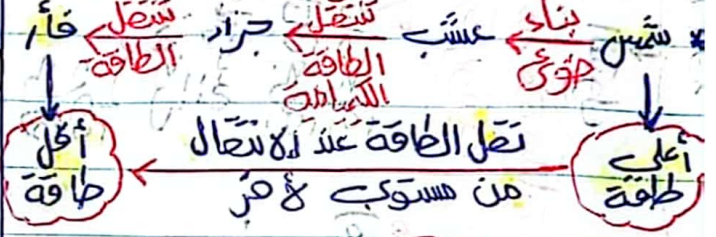 * شمس ← بناء ضوئي ← عشب ← تنتقل الطاقة الكيميائية ← جراد ← تنتقل الطاقة ← فأر
أعلى طاقة
تقل الطاقة عند الانتقال
من مستوى لآخر
أقل طاقة